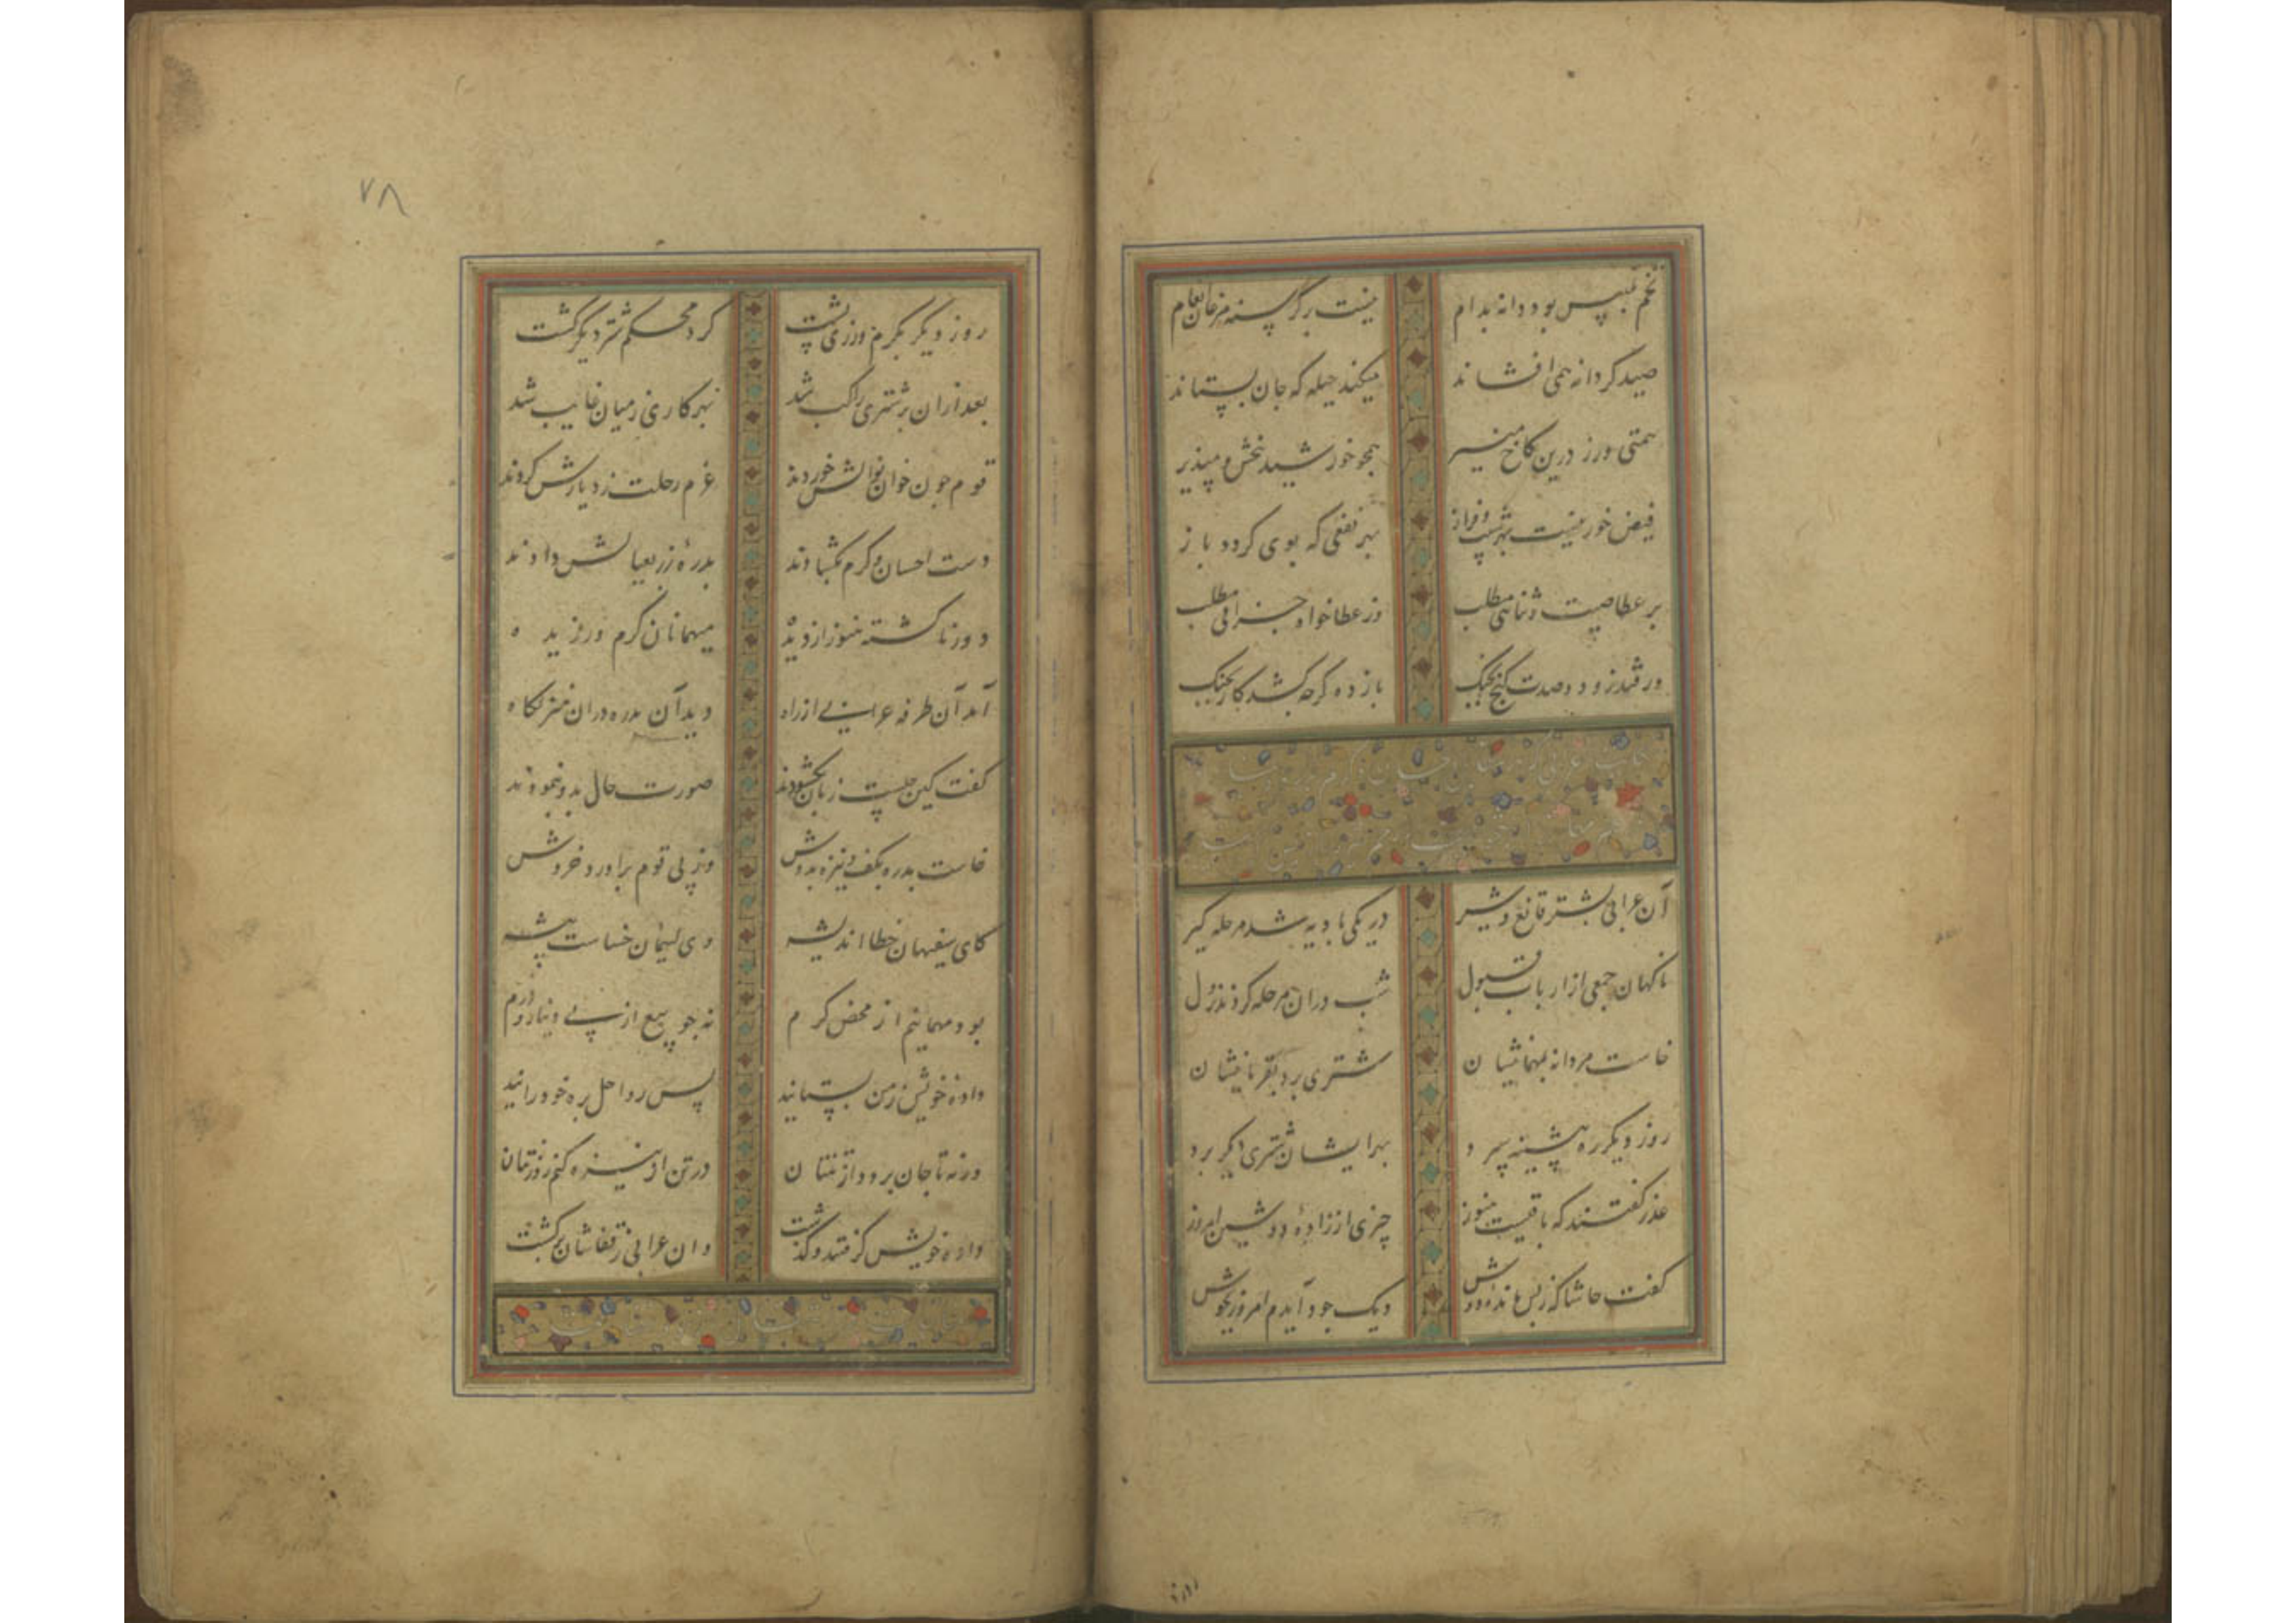 تخم تلبیس بود دانه بدام نیست بر گرسنه مرغان انعام
صید کر دانه همی افشاند میکند حیله که جان بستاند
همتی ورز درین کاخ منیر همچو خورشید ببخش و مپذیر
فیض خور نیست بهر شیب و فراز بهر نفعی که بوی کردد باز
بر عطا صیت و ثنایی مطلب وز عطاخواه جزایی مطلب
ور فتد زود دو صدت کنج بچنک باز ده کرچه کشد کار بجنک
آن عرابی بشتر قانع و شیر در یکی بادیه شد مرحله کیر
ناکهان جمعی از ارباب قبول شب دران مرحله کردند نزول
خاست مردانه بمهمانیشان شتری برد بقربانیشان
روز دیکر ره پیشینه سپرد بهر ایشان شتری دیکر برد
عذر کفتند که باقیست هنوز چیزی از زاده دوشین امروز
کفت حاشا که ز پس مانده دوش دیک جود آیدم امروز بجوش
۷۸
روز دیکر بکرم ورزی پشت کرد محکم شتر دیکر کشت
بعد ازان بر شتری راکب شد بهر کاری ز میان غایب شد
قوم چون خوان نوالش خوردند عزم رحلت ز دیارش کردند
دست احسان و کرم بکشادند بدره زر بعیالش دادند
دور ناکشته هنوز از دیده میهمانان کرم ورزیده
آمد آن طرفه عرابی از راه دید آن بدره دران منزلکاه
کفت کین چیست زبان بکشودند صورت حال بدو بنمودند
خاست بدره بکف و نیزه بدوش وز پی قوم براورد خروش
کای سفیهان خطا اندیشه وی لئیمان خساست پیشه
بود مهمانیم از محض کرم نه چو بیع از پی دینار و درم
داده خویش ز من بستانید پس رواحل بره خود رانید
ورنه تا جان برود از تنتان در تن از نیزه کنم روزنتان
داده خویش کرفتند و کذشت وان عرابی ز قفاشان برکشت